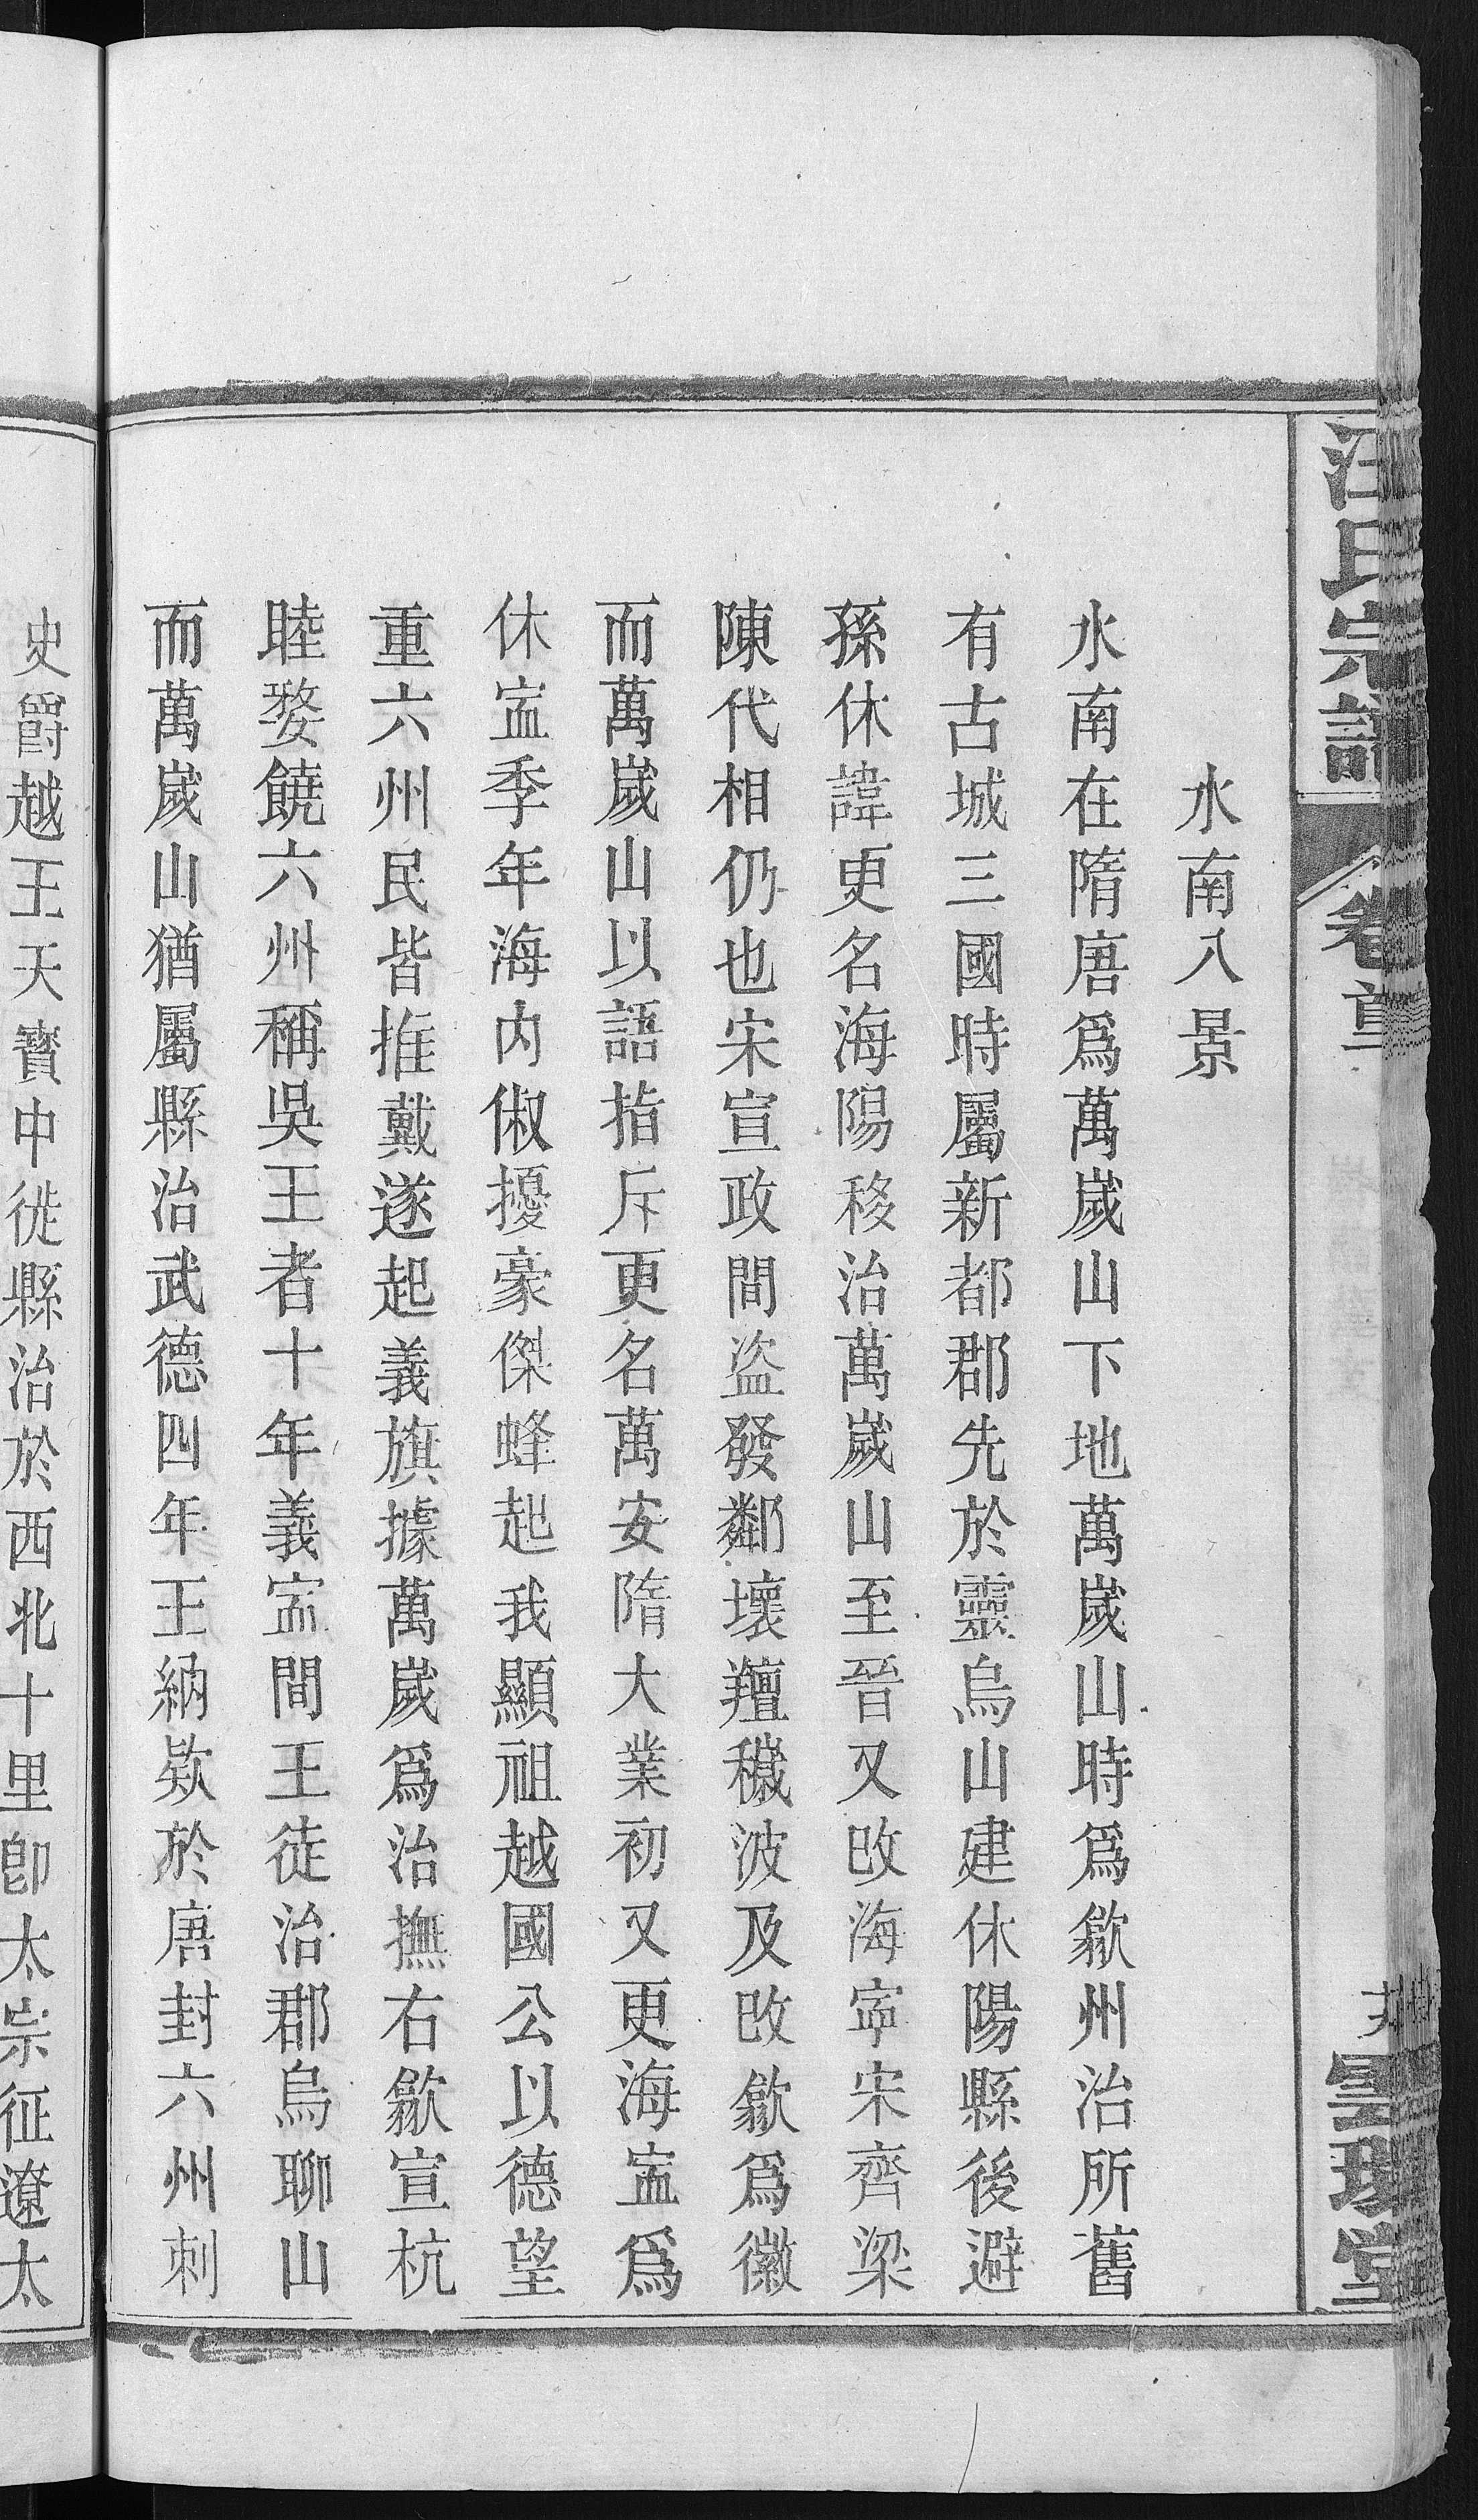 汪氏宗譜
卷首
雲環堂
水南八景
水南在隋唐爲萬歲山下地萬歲山時爲歙州治所舊
有古城三國時屬新都郡先於靈烏山建休陽縣後避
孫休諱更名海陽移治萬歲山至晉又改海寧宋齊梁
陳代相仍也宋宣政間盜發鄰壤羶穢波及改歙爲徽
而萬歲山以語指斥更名萬安隋大業初又更海寍爲
休寍季年海内俶擾豪傑蜂起我顯祖越國公以德望
重六州民皆推戴遂起義旗據萬歲爲治撫右歙宣杭
睦婺饒六州稱吳王者十年義寍間王徒治郡烏聊山
而萬歲山猶屬縣治武德四年王納欵於唐封六州刺
史爵越王天寳中徙縣治於西北十里卽太宗征遼太